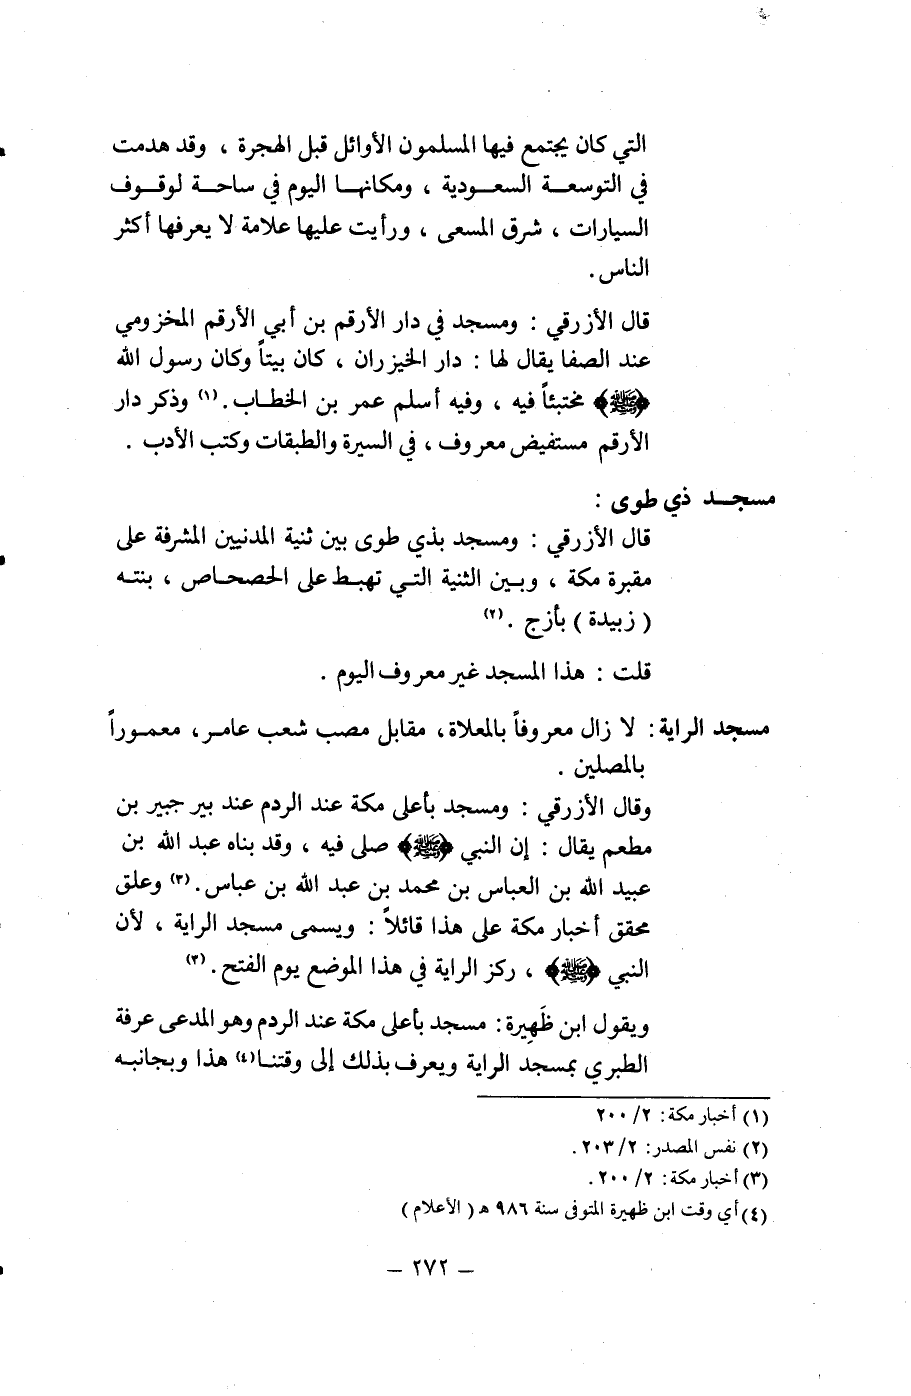 التي كان يجتمع فيها المسلمون الأوائل قبل الهجرة ، وقد هدمت
في التوسعة السعودية ، ومكانها اليوم في ساحة لوقوف
السيارات ، شرق المسعى ، ورأيت عليها علامة لا يعرفها أكثر
الناس .
قال الأزرقي : ومسجد في دار الأرقم بن أبي الأرقم المخزومي
عند الصفا يقال لها : دار الخيزران ، كان بيتاً وكان رسول الله
﴿ﷺ﴾ مختبئاً فيه ، وفيه أسلم عمر بن الخطاب . (١) وذكر دار
الأرقم مستفيض معروف ، في السيرة والطبقات وكتب الأدب .
مسجد ذي طوى :
قال الأزرقي : ومسجد بذي طوى بين ثنية المدنيين المشرفة على
مقبرة مكة ، وبين الثنية التي تهبط على الحصحاص ، بنته
( زبيدة ) بأزج . (٢)
قلت : هذا المسجد غير معروف اليوم .
مسجد الراية : لا زال معروفاً بالمعلاة ، مقابل مصب شعب عامر ، معموراً
بالمصلين .
وقال الأزرقي : ومسجد بأعلى مكة عند الردم عند بير جبير بن
مطعم يقال : إن النبي ﴿ﷺ﴾ صلى فيه ، وقد بناه عبد الله بن
عبيد الله بن العباس بن محمد بن عبد الله بن عباس . (٣) وعلق
محقق أخبار مكة على هذا قائلاً : ويسمى مسجد الراية ، لأن
النبي ﴿ﷺ﴾ ، ركز الراية في هذا الموضع يوم الفتح . (٣)
ويقول ابن ظَهِيرة : مسجد بأعلى مكة عند الردم وهو المدعى عرفة
الطبري بمسجد الراية ويعرف بذلك إلى وقتنا (٤) هذا وبجانبه
(١) أخبار مكة : ٢/ ٢٠٠
(٢) نفس المصدر : ٢/ ٢٠٣ .
(٣) أخبار مكة : ٢/ ٢٠٠ .
(٤) أي وقت ابن ظهيرة المتوفى سنة ٩٨٦ هـ ( الأعلام )
– ٢٧٢ –